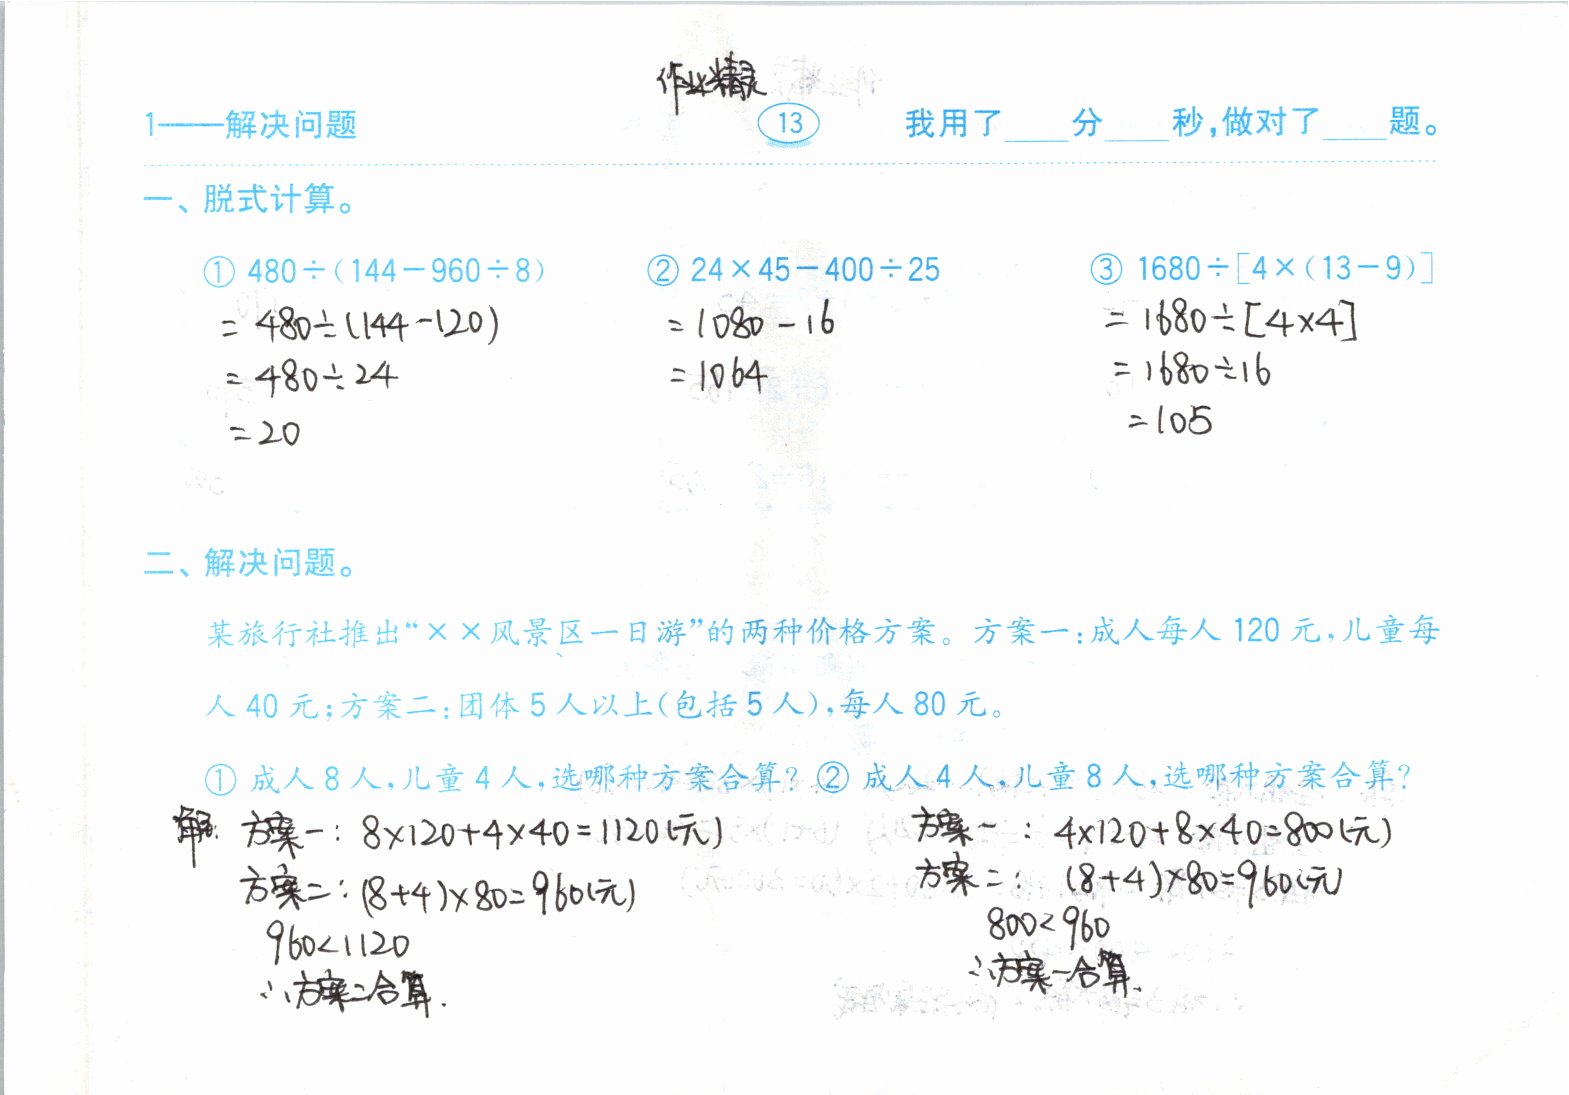 作业精灵
1——解决问题 13 我用了____分____秒,做对了____题。
一、脱式计算。
① 480÷(144-960÷8) ② 24×45-400÷25 ③ 1680÷[4×(13-9)]
= 480÷(144-120) = 1080-16 = 1680÷[4×4]
= 480÷24 = 1064 = 1680÷16
= 20 = 105
二、解决问题。
某旅行社推出“××风景区一日游”的两种价格方案。方案一:成人每人 120 元,儿童每
人 40 元;方案二:团体 5 人以上(包括 5 人),每人 80 元。
① 成人 8 人,儿童 4 人,选哪种方案合算? ② 成人 4 人,儿童 8 人,选哪种方案合算?
解: 方案一: 8×120+4×40=1120(元) 方案一: 4×120+8×40=800(元)
方案二: (8+4)×80=960(元) 方案二: (8+4)×80=960(元)
960<1120 800<960
∴方案二合算. ∴方案一合算.